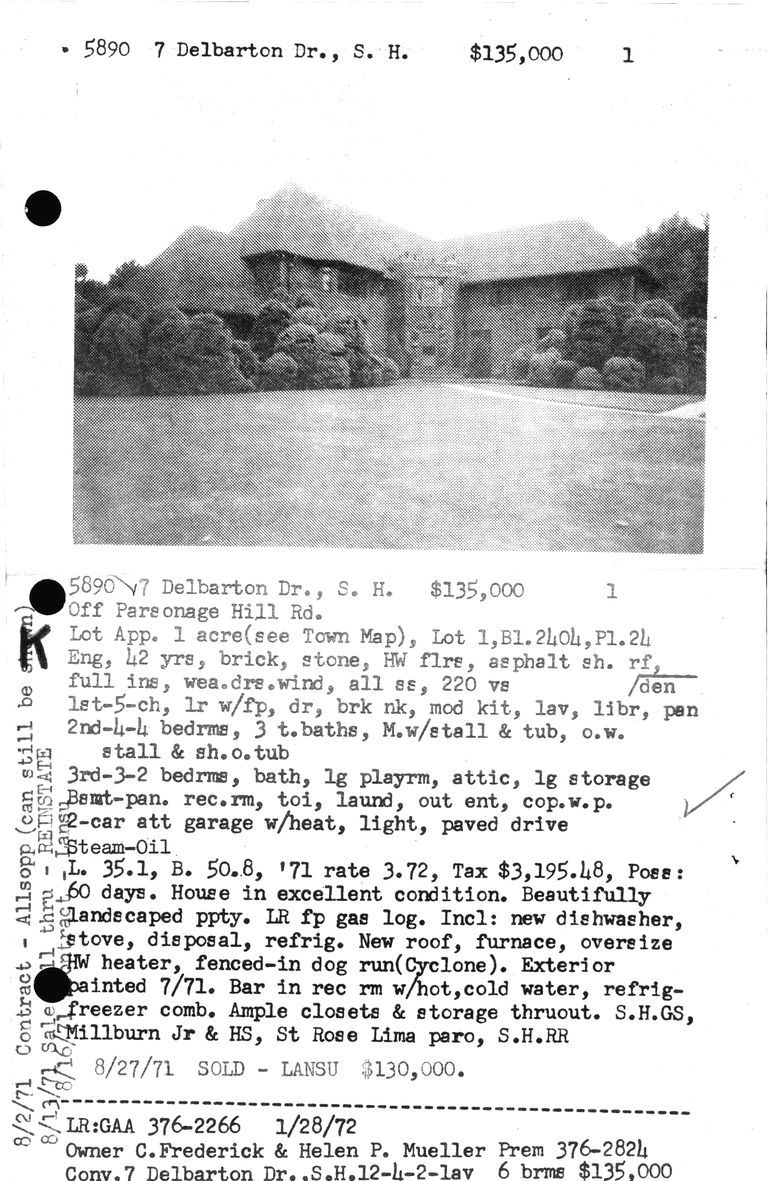 5890 7 Delbarton Dr., S. H. $135,000 1
5890 7 Delbarton Dr., S. H. $135,000 1
Off Parsonage Hill Rd.
Lot App. 1 acre(see Town Map), Lot 1,Bl.2404,Pl.24
Eng, 42 yrs, brick, stone, HW flrs, asphalt sh. rf,
full ins, wea.drs.wind, all ss, 220 vs /den
1st-5-ch, lr w/fp, dr, brk nk, mod kit, lav, libr, pan
2nd-4-4 bedrms, 3 t.baths, M.w/stall & tub, o.w.
stall & sh.o.tub
3rd-3-2 bedrms, bath, lg playrm, attic, lg storage
Bsmt-pan. rec.rm, toi, laund, out ent, cop.w.p.
2-car att garage w/heat, light, paved drive
Steam-Oil
L. 35.1, B. 50.8, '71 rate 3.72, Tax $3,195.48, Poss:
60 days. House in excellent condition. Beautifully
landscaped ppty. LR fp gas log. Incl: new dishwasher,
stove, disposal, refrig. New roof, furnace, oversize
HW heater, fenced-in dog run(Cyclone). Exterior
painted 7/71. Bar in rec rm w/hot,cold water, refrig-
freezer comb. Ample closets & storage thruout. S.H.GS,
Millburn Jr & HS, St Rose Lima paro, S.H.RR
8/27/71 SOLD - LANSU $130,000.
LR:GAA 376-2266 1/28/72
Owner C.Frederick & Helen P. Mueller Prem 376-2824
Conv.7 Delbarton Dr.,S.H.12-4-2-lav 6 brms $135,000
8/2/71 Contract - Allsopp (can still be shown)
8/13/71 Sale fell thru - REINSTATE
8/16/71 Contract - Lansu
K